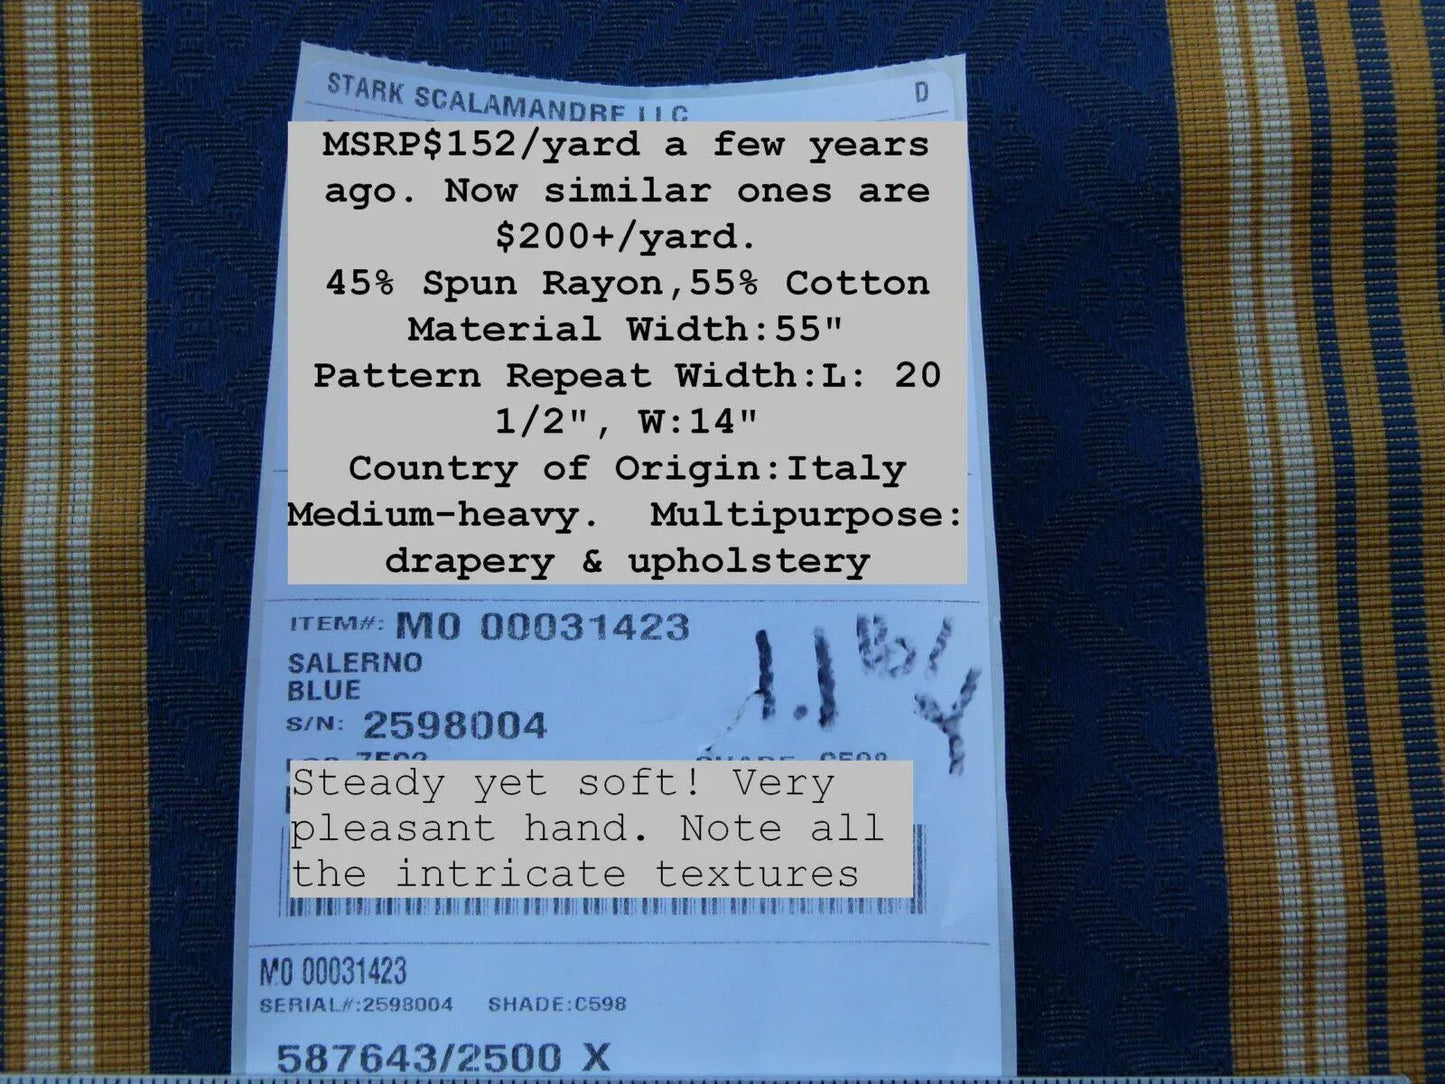 STARK SCALAMANDRE LLC D
MSRP$152/yard a few years
ago. Now similar ones are
$200+/yard.
45% Spun Rayon,55% Cotton
Material Width:55"
Pattern Repeat Width:L: 20
1/2", W:14"
Country of Origin:Italy
Medium-heavy. Multipurpose:
drapery & upholstery
ITEM#: M0 00031423
SALERNO
BLUE
S/N: 2598004
1.1 lb/
Y
SHADE: C598
Steady yet soft! Very
pleasant hand. Note all
the intricate textures
M0 00031423
SERIAL#:2598004 SHADE:C598
587643/2500 X